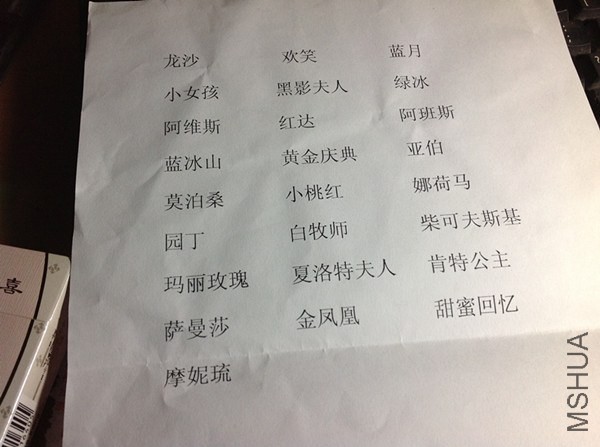 龙沙 欢笑 蓝月
小女孩 黑影夫人 绿冰
阿维斯 红达 阿班斯
蓝冰山 黄金庆典 亚伯
莫泊桑 小桃红 娜荷马
园丁 白牧师 柴可夫斯基
玛丽玫瑰 夏洛特夫人 肯特公主
萨曼莎 金凤凰 甜蜜回忆
摩妮琉
喜
MSHUA